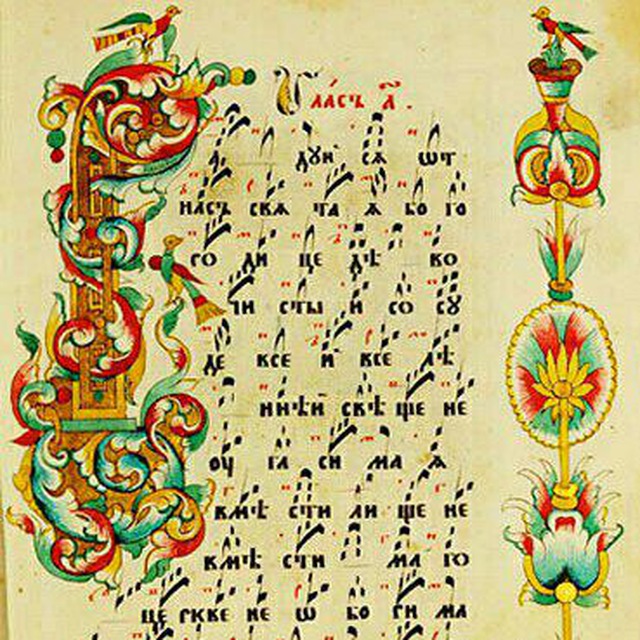 Гла́съ а҃.
а дꙋи сѧ ѡт
насъ свѧ та ѧ бо го
ро ди це дѣ во
чи сты и со сꙋ
де все и все
свѣ ще не
оу га си ма ѧ
вмѣ сти ли ще не
вмѣ сти ма го
це ркве не ѡ бо ри ма